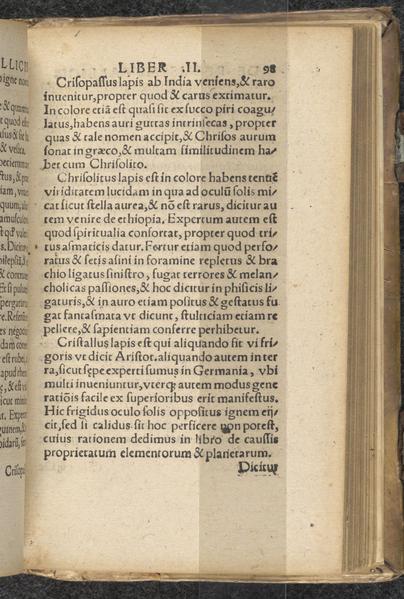 LIBER .II. 98
Crisopassus lapis ab India veniens,& raro
inuenitur,propter quod & carus extimatur.
In colore etiã est quasi sit ex succo piri coagu/
latus,habens auri guttas intrinsecas, propter
quas & tale nomen accipit,& Chrisos aurum
sonat in græco,& multam similitudinem ha/
bet cum Chrisolito.
Chrisolitus lapis est in colore habens tentẽ
viriditatem lucidam in qua ad oculũ solis mi/
cat sicut stella aurea,& nõ est rarus, dicitur au
tem venire de ethiopia. Expertum autem est
quod spiritualia confortat, propter quod tri/
tus asmaticis datur. Fertur etiam quod perfo/
ratus & setis asini in foramine repletus & bra
chio ligatus sinistro, fugat terrores & melan/
cholicas passiões,& hoc dicitur in phisicis li
gaturis,& in auro etiam positus & gestatus fu
gat fantasmata vt dicunt, stulticiam etiam re
pellere,& sapientiam conferre perhibetur.
Cristallus lapis est qui aliquando fit vi fri/
goris vt dicit Aristot.aliquando autem in ter
ra,sicut sępe experti sumus in Germania, vbi
multi inueniuntur,vterq; autem modus gene
rationis facile ex superioribus erit manifestus.
Hic frigidus oculo solis oppositus ignem eij/
cit,sed si calidus sit hoc perficere non potest,
cuius rationem dedimus in libro de caussis
proprietatum elementorum & planetarum.
Dicitur
LLICII